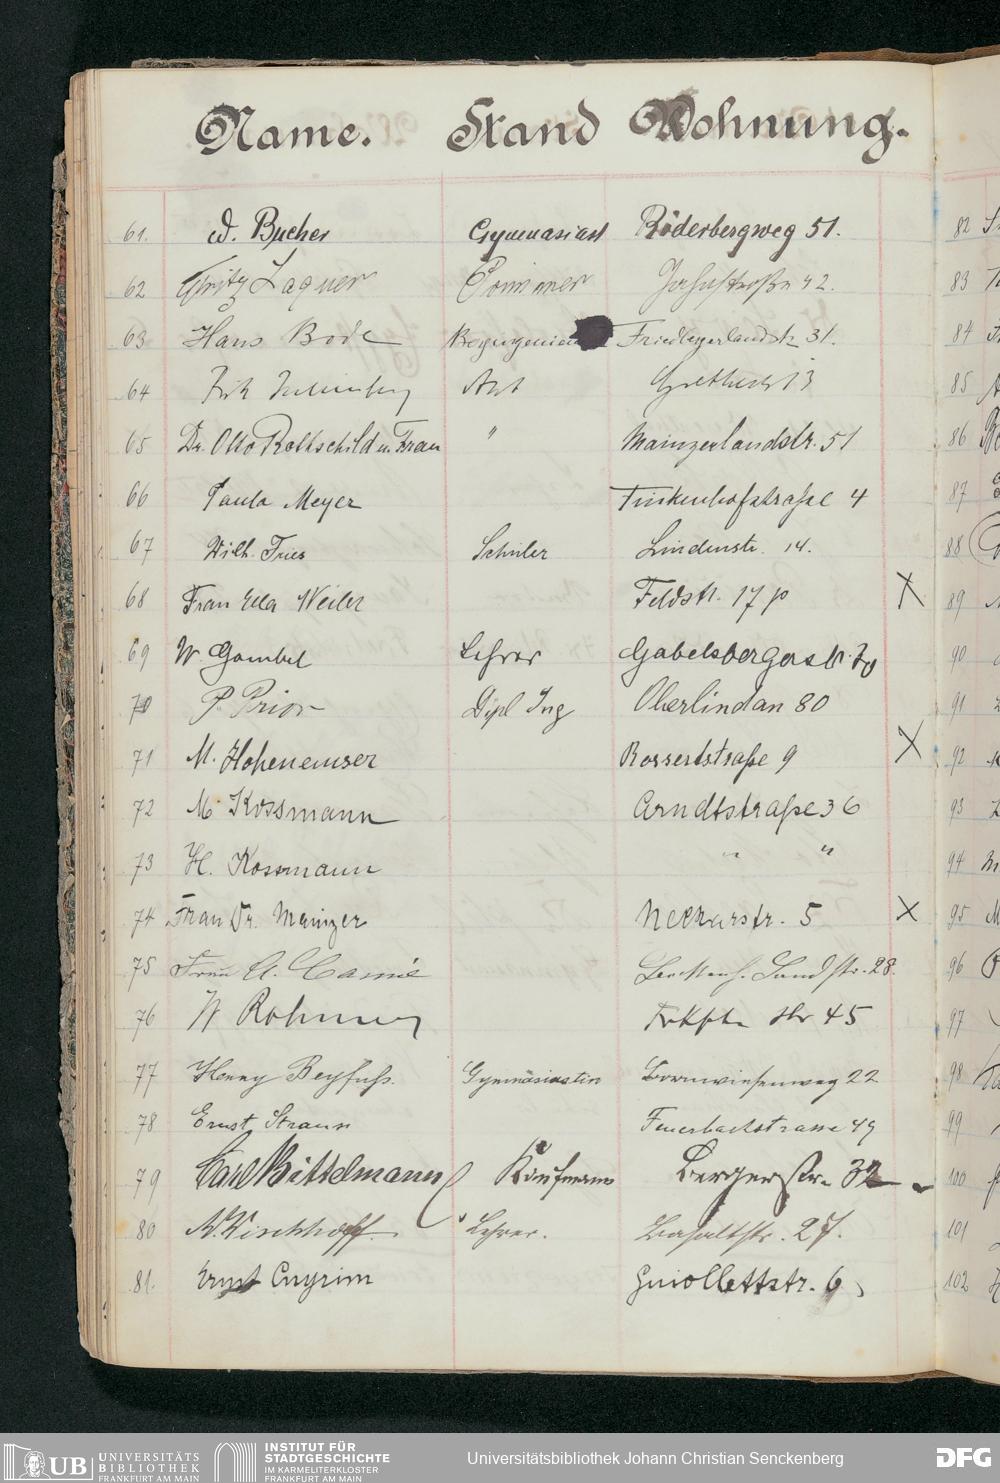 Name. Stand Wohnung.
61. W. Bucher Gymnasiast Röderbergweg 51.
62 Fritz Laquer Jahnstraße 42.
63 Hans Bode Friedbergerlandstr 31.
64 Arzt Goethestr 13
65 Dr. Otto Rothschild u. Frau " Mainzerlandstr. 51
66 Paula Meyer Finkenhofstraße 4
67 Wilh. Fries Schüler Lindenstr. 14.
68 Frau Ella Weiler Feldstr. 17 p X
69 W. Gombel Lehrer Gabelsbergerstr.
70 P. Prior Dipl Ing Oberlindau 80
71 M. Hohenemser Rossertstraße 9 X
72 M. Kossmann Arndtstraße 36
73 H. Kossmann " "
74 Frau Dr. Mainzer Neckarstr. 5 X
75 Frau A. Landstr. 28.
76 W Rohmer Str 45
77 Henny Beyfuhs. Gymnasiastin Bornwiesenweg 22
78 Ernst Strauss Feuerbachstrasse 49
79 Carl Bittelmann Kaufmann Bergerstr. 32
80 N. Kirchhoff Lehrer. Basaltstr. 27.
81. Ernst Cnyrim Guiollettstr. 6
82
83
84
85
86
87
88
89
90
91
92
93
94
95
96
97
98
99
100
101
102
UB UNIVERSITÄTS
BIBLIOTHEK
FRANKFURT AM MAIN
INSTITUT FÜR
STADTGESCHICHTE
IM KARMELITERKLOSTER
FRANKFURT AM MAIN
Universitätsbibliothek Johann Christian Senckenberg
DFG